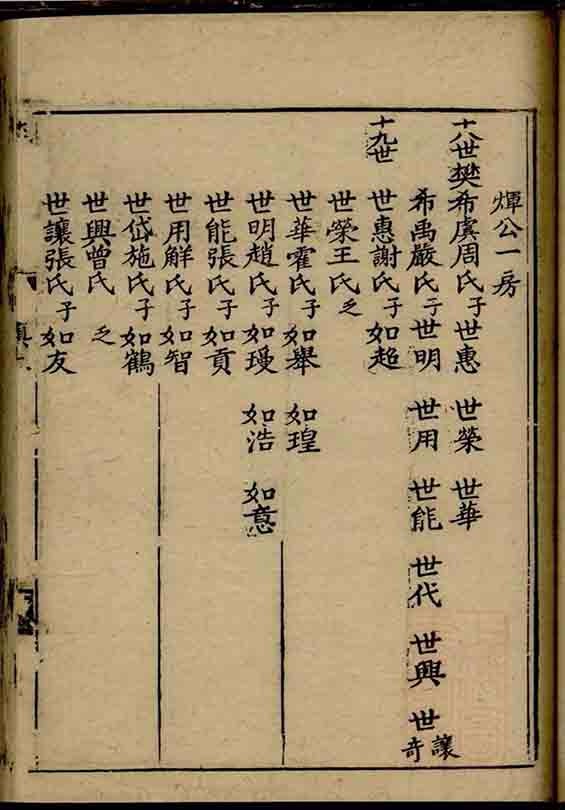 煇公一房
十八世樊希虞周氏子世惠 世榮 世華
希禹嚴氏子世明 世用 世能 世代 世興 世讓奇
十九世 世惠謝氏子如超
世榮王氏乏
世華霍氏子如舉 如瑝
世明趙氏子如璦 如浩 如意
世能張氏子如貢
世用解氏子如智
世岱施氏子如鶴
世興曾氏 乏
世讓張氏子如友